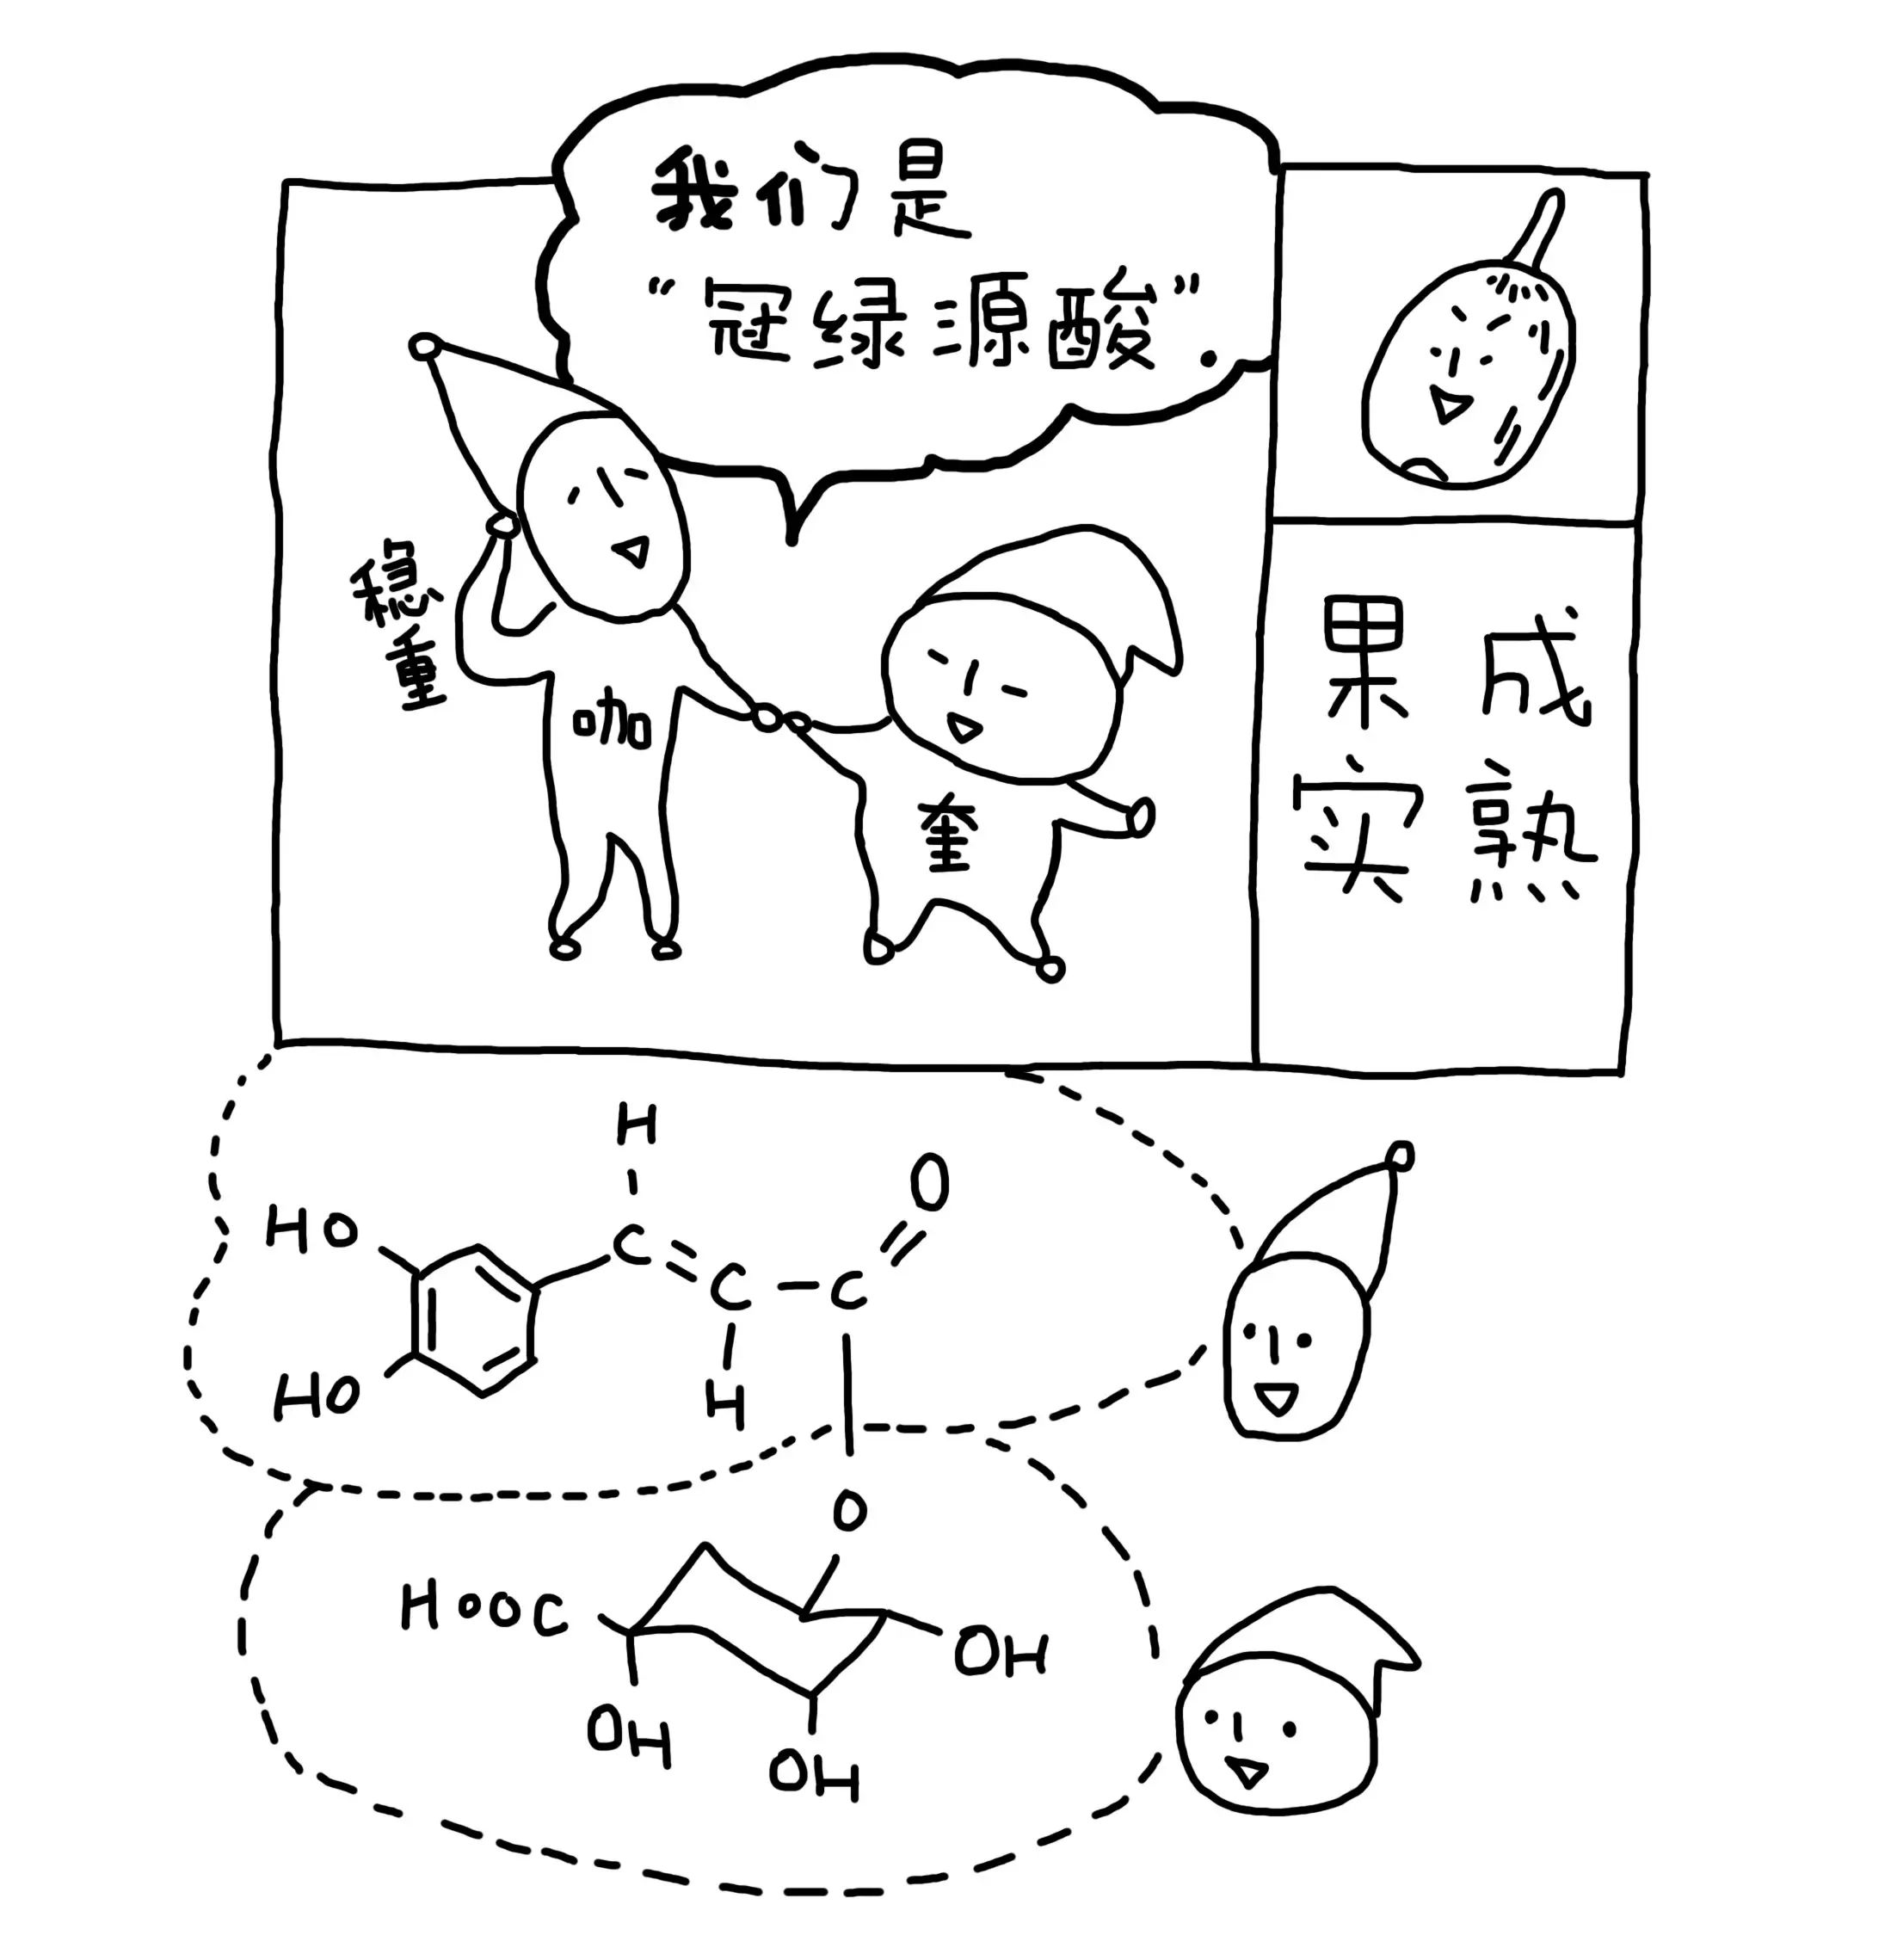 我们是
“冠绿源酸”.
稳重
咖
奎
果实
成熟
H
O
HO
C
C
C
HO
H
O
HOOC
OH
OH
OH